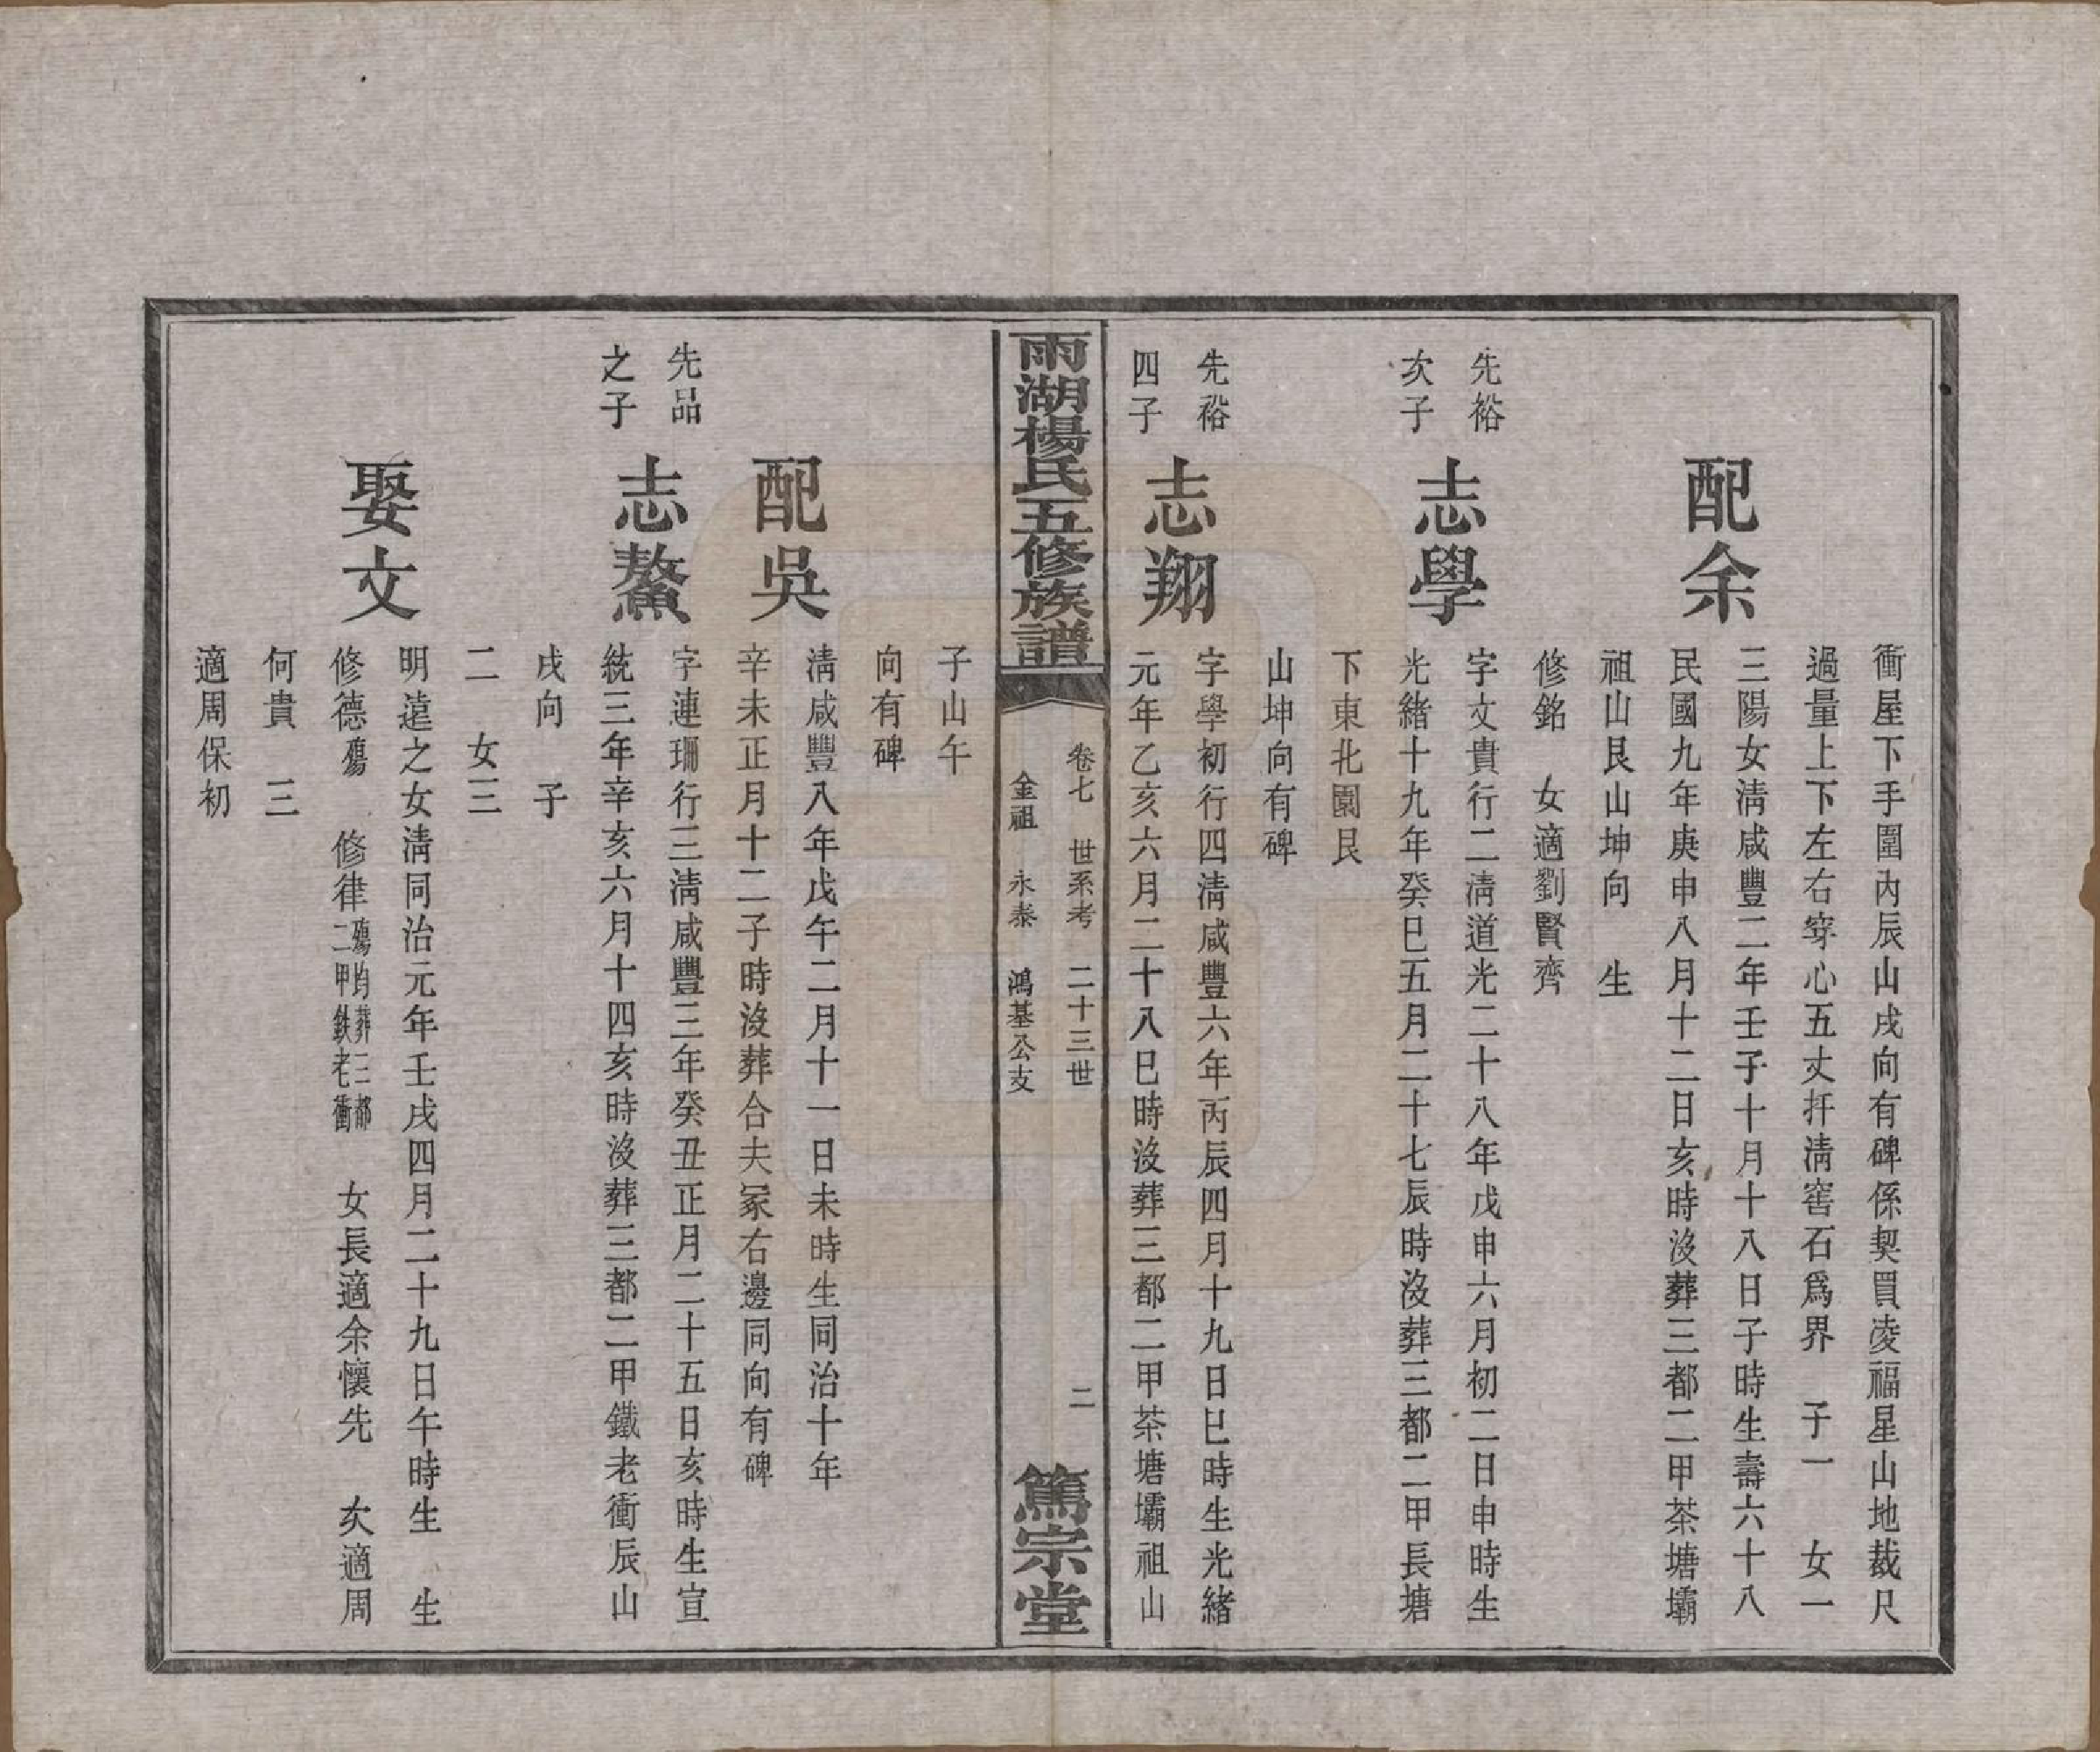 衝屋下手圍內辰山戌向有碑係契買凌福星山地裁尺
過量上下左右穿心五丈扦淸窖石爲界　子一　女一
配余
三陽女淸咸豐二年壬子十月十八日子時生壽六十八
民國九年庚申八月十二日亥時沒葬三都二甲茶塘壩
祖山艮山坤向　生
修銘　女適劉賢齊
先裕
次子
志學
字文貴行二淸道光二十八年戊申六月初二日申時生
光緒十九年癸巳五月二十七辰時沒葬三都二甲長塘
下東北園艮
山坤向有碑
先裕
四子
志翔
字學初行四淸咸豐六年丙辰四月十九日巳時生光緒
元年乙亥六月二十八巳時沒葬三都二甲茶塘壩祖山
雨湖楊氏五修族譜
卷七　世系考　二十三世　二
金祖　永泰　鴻基公支
篤宗堂
子山午
向有碑
配吳
淸咸豐八年戊午二月十一日未時生同治十年
辛未正月十二子時沒葬合夫冢右邊同向有碑
先品
之子
志鰲
字連珊行三淸咸豐三年癸丑正月二十五日亥時生宣
統三年辛亥六月十四亥時沒葬三都二甲鐵老衝辰山
戌向　子
二　女三
娶文
明遠之女淸同治元年壬戌四月二十九日午時生　生
修德殤　修律殤均葬三都二甲鉄老衝　女長適余懷先　次適周
何貴　三
適周保初